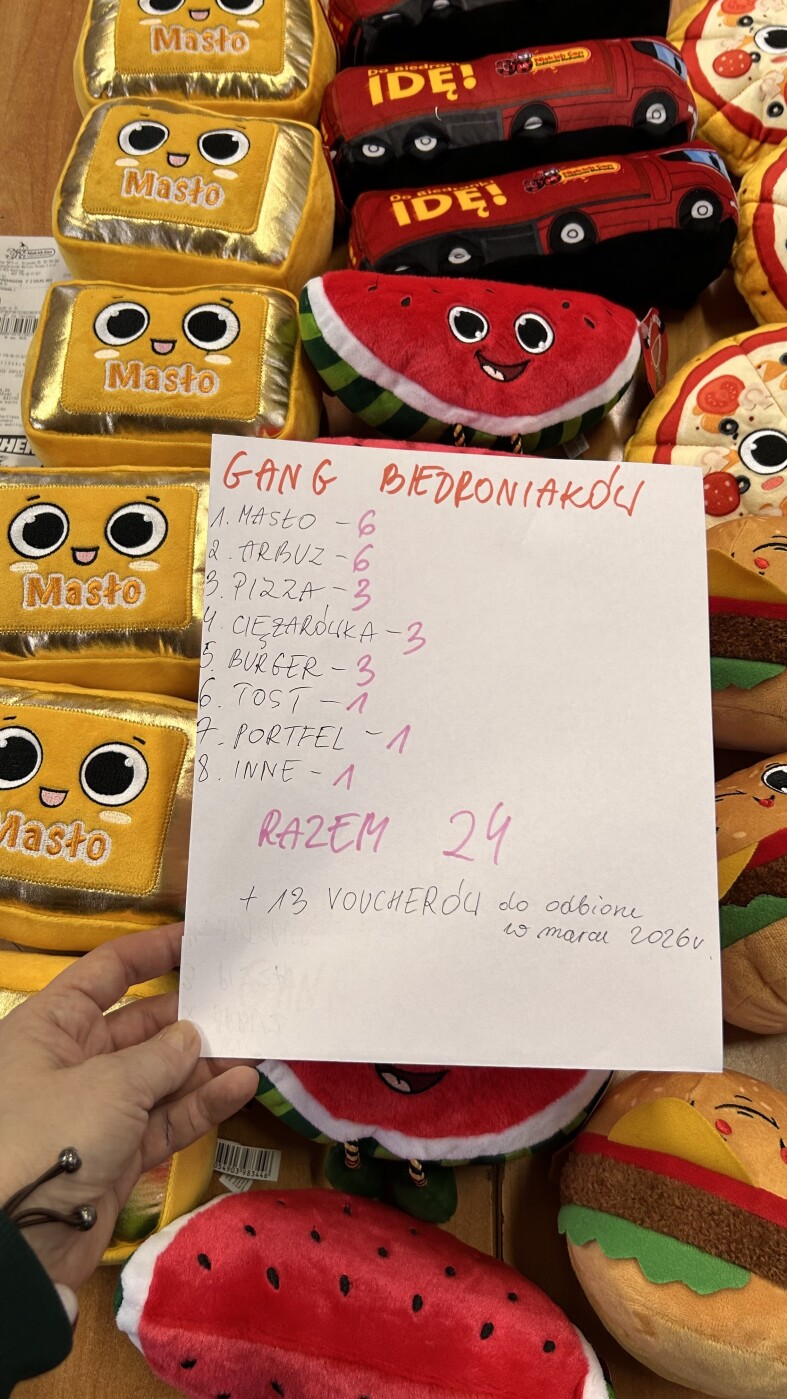 Masło
Do Biedronki
IDĘ!
Masło
Do Biedronki
IDĘ!
Masło
GANG BIEDRONIAKÓW
1. MASŁO - 6
2. ARBUZ - 6
3. PIZZA - 3
4. CIĘŻARÓWKA - 3
5. BURGER - 3
6. TOST - 1
7. PORTFEL - 1
8. INNE - 1
RAZEM 24
+ 13 VOUCHERÓW do odbioru
w marcu 2026r.
Masło
Masło